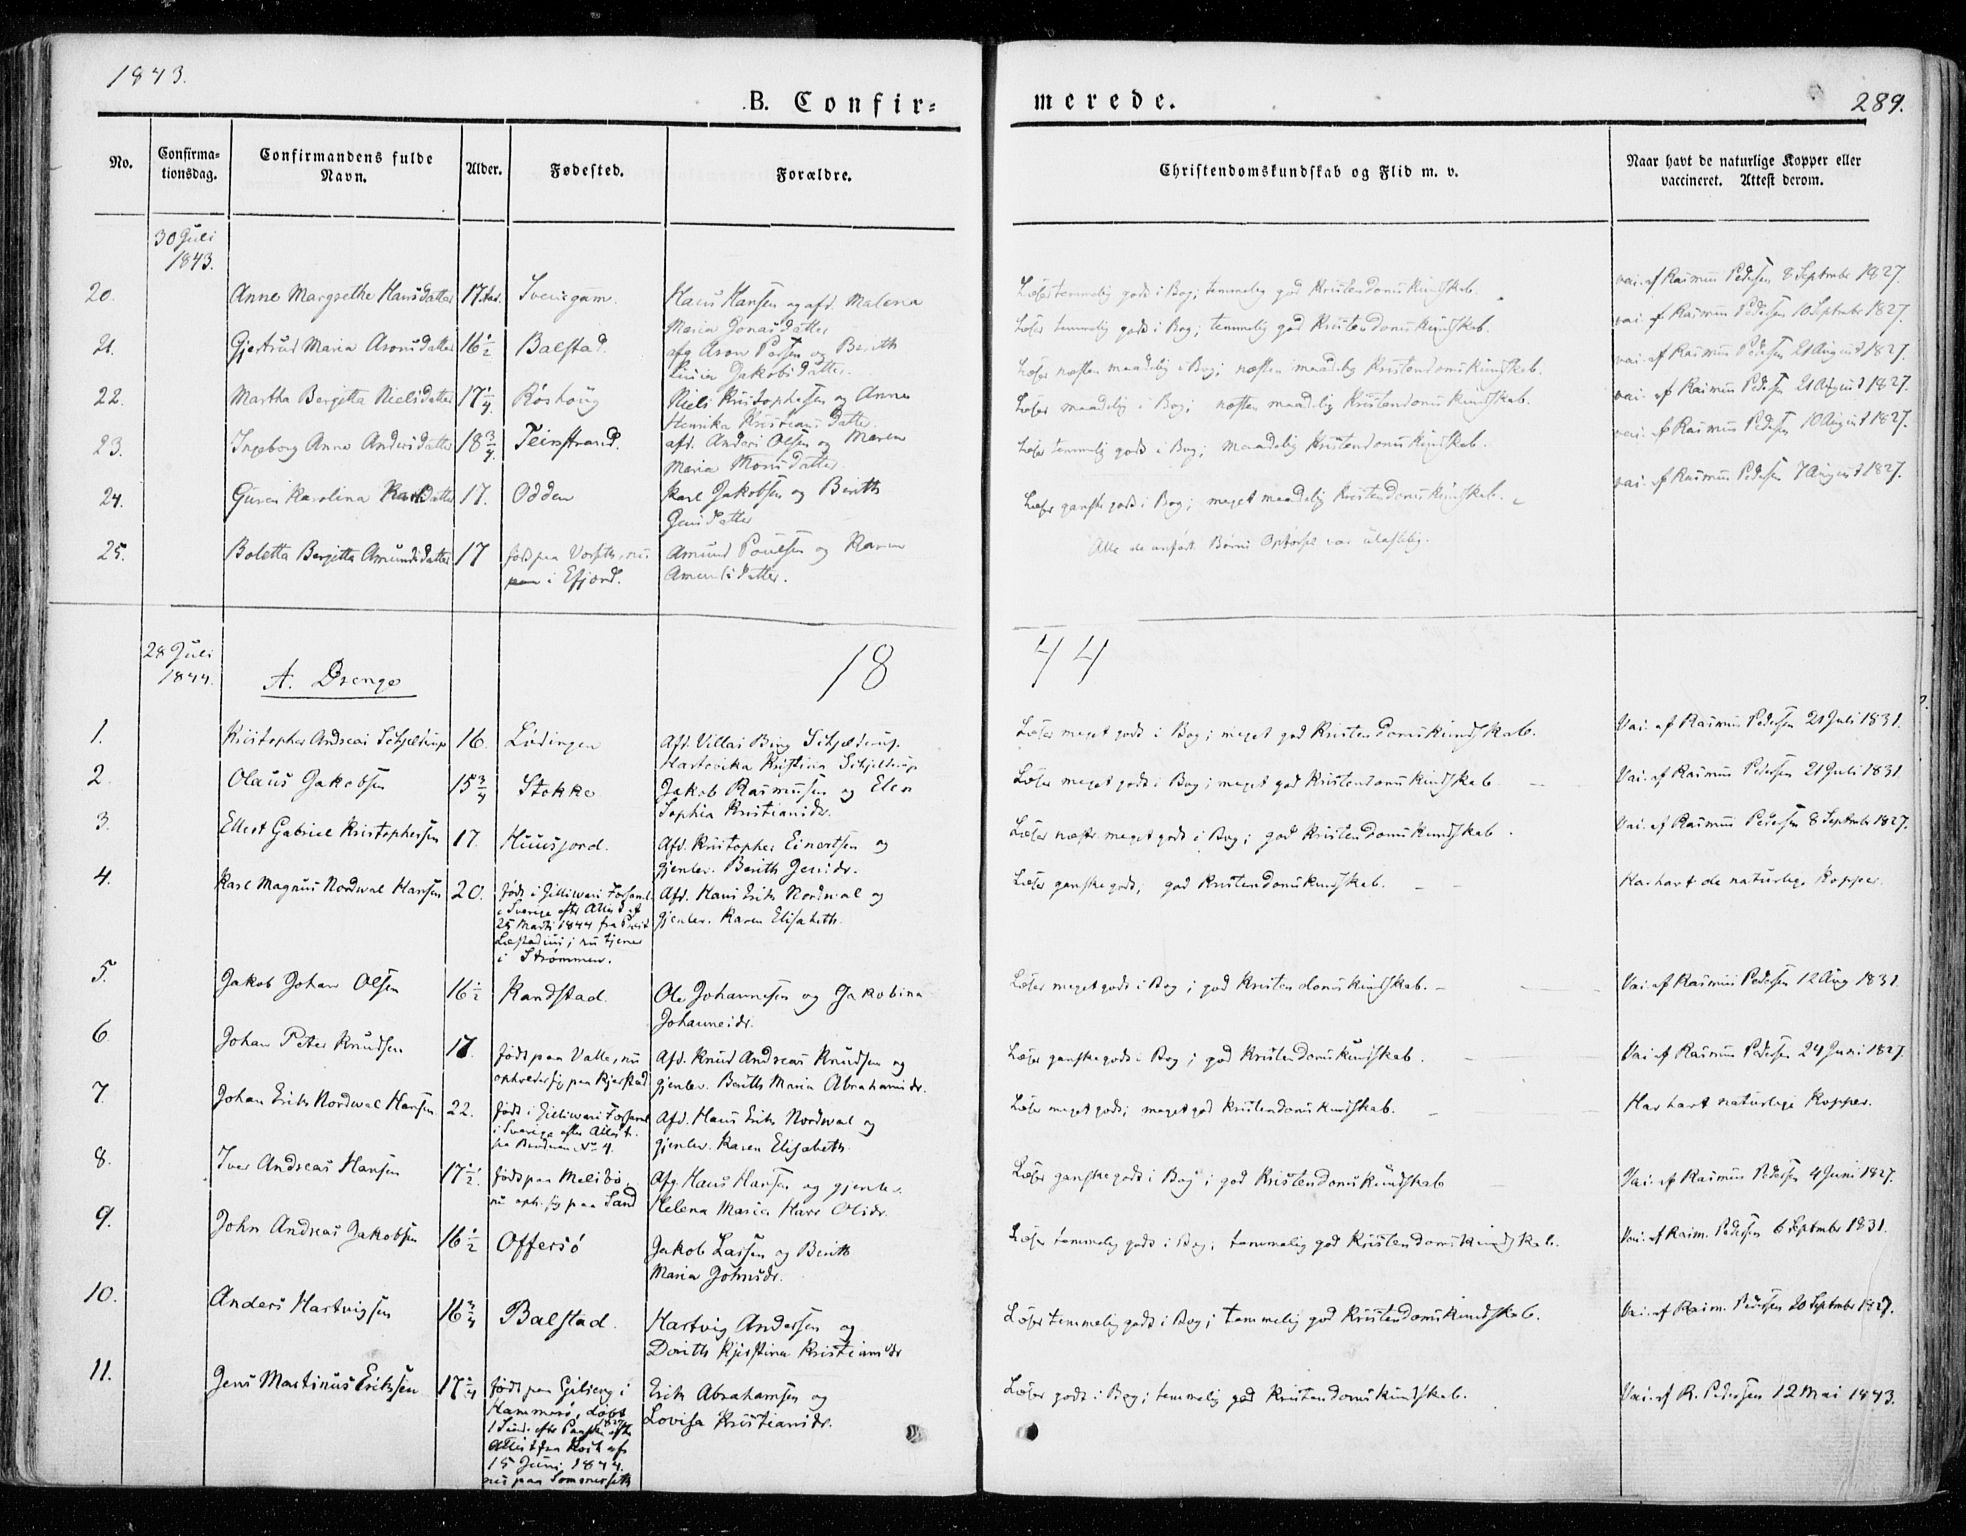 1843.
B. Confir=
merede.
289.
No.
Confirma=
tionsdag.
Confirmandens fulde
Navn.
Alder.
Fødested.
Forældre.
Christendomskundskab og Flid m. v.
Naar havt de naturlige Kopper eller
vaccineret. Attest derom.
30 Juli
1843.
20. Anne Margrethe Hansdatter 17 Hans Hansen og afd. Malena Læser temmelig godt i Bog; temmelig god Kristendomskundskab. vai. af Rasmus Pedersen 8 September 1827.
Maria Jonasdatter
21. Gjertrud Maria Aronsdatter 16 1/2 Balstad. afg Aron Persen og Berith Læser temmelig godt i Bog; temmelig god Kristendomskundskab. vai. af Rasmus Pedersen 10 September 1827.
Jakobsdatter.
22. Martha Bergitta Nielsdatter 17 1/4 Niels Kristophersen og Anne Læser næsten maadelig i Bog; næsten maadelig Kristendomskundskab. vai. af Rasmus Pedersen 21 August 1827.
Henrika Kristiansdatter.
23. Ingeborg Anne Andersdatter 18 3/4 Teinstrand. afd. Anders Olsen og Maren Læser maadelig i Bog; næsten maadelig Kristendomskundskab. vai. af Rasmus Pedersen 21 August 1827.
Maria Monsdatter.
24. Guren Karolina Karlsdatter 17. Odden Karl Jakobsen og Berith Læser temmelig godt i Bog; maadelig Kristendomskundskab. vai. af Rasmus Pedersen 10 August 1827.
Jensdatter
25. Boletta Bergitta Amundsdatter 17 født paa nu Amund Poulsen og Karen Læser ganske godt i Bog; meget maadelig Kristendomskundskab. vai. af Rasmus Pedersen 7 August 1827.
i Efjord. Amundsdatter.
Alle de anførte Børns Opførsel var ulastelig.
28 Juli
1844.
A. Drenge
18 44
1. Kristopher Andreas Schjelderup 16. Lødingen Afd. Villas Bing Schjelderup. Læser meget godt i Bog; meget god Kristendomskundskab. Vai. af Rasmus Pedersen 21 Juli 1831.
Hartvika Kristina Schjelderup
2. Olaus Jakobsen 15 3/4 Stokke Jakob Rasmusen og Elen Læser meget godt i Bog; meget god Kristendomskundskab. Vai. af Rasmus Pedersen 21 Juli 1831
Sophia Kristiansdr.
3. Ellert Gabriel Kristophersen 17. Huusjord. Afd. Kristopher Einertsen og Læser næsten meget godt i Bog; god Kristendomskundskab. Vai. af Rasmus Pedersen 8 September 1827.
gjenlev. Berith Jensdr.
4. Karl Magnus Nordwal Hansen 20. født i Gilliwari Forsaml. Afd. Hans Erik Nordwal og Læser ganske godt; god Kristendomskundskab. Har havt de naturlige Kopper.
i Sverige efter Attest af gjenlev. Karen Elisabeth.
25 Marts 1844 fra Præst
Læstadius; nu tjener
i Strømmen.
5. Jakob Johan Olsen 16 1/2 Kandstad. Ole Johannesen og Jakobina Læser meget godt i Bog; god Kristendomskundskab. Vai. af Rasmus Pedersen 12 Aug 1831.
Johannesdr.
6. Johan Peter Knudsen 17. født paa Valle, nu Afd. Knud Andreas Knudsen og Læser ganske godt i Bog; god Kristendomskundskab. Vai. af Rasmus Pedersen 24 Juni 1827.
opholder sig paa Kjerstad gjenlev. Berith Maria Abrahamsdr.
7. Johan Erik Nordwal Hansen 22. født i Gilliwari Forsaml. Afd. Hans Erik Nordwal og Læser meget godt; meget god Kristendomskundskab. Har havt naturlige Kopper.
i Sverige efter Attest. gjenlev. Karen Elisabeth.
No 4.
8. Iver Andreas Hansen 17 1/2. født paa Melibø, Afg. Hans Hansen og gjenlev. Læser ganske godt i Bog; god Kristendomskundskab Vai. af Rasmus Pedersen 4 Juni 1827.
nu oph. sig paa Sand Helena Maria Olsdr.
9. John Andreas Jakobsen 16 1/2 Offersø Jakob Larsen og Berith Læser temmelig godt i Bog; temmelig god Kristendomskundskab. Vai. af Rasm. Pedersen 6 September 1831.
Maria Johnsdr.
10. Anders Hartvigsen 16 3/4 Balstad. Hartvig Andersen og Læser temmelig godt i Bog; temmelig god Kristendomskundskab. Vai. af Rasm. Pedersen 20 September 1827.
Dorith Kjerstina Kristiansdr
11. Jens Martinus Eriksen 17 1/4 født paa i Erik Abrahamsen og Læser godt i Bog; temmelig god Kristendomskundskab. Vai. af R. Pedersen 12 Mai 1843.
Hammerø, døbt Lovisa Kristiansdr.
15 Juni 1844.
nu paa Sommerseth